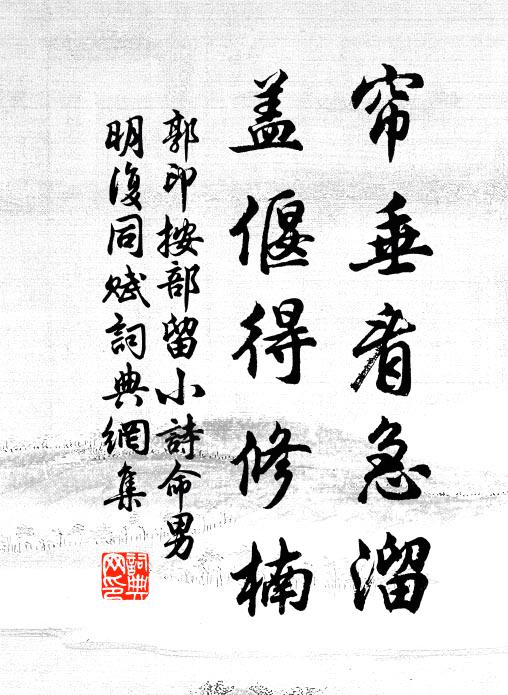 帘垂看急溜
盖偃得修楠
郭印按部留小詩命男
明復同賦詞典網集
詞典
网印